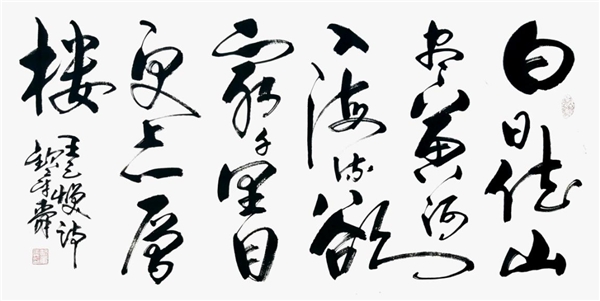 白日依山
尽黄河
入海流欲
窮千里目
更上層
楼
王之涣诗